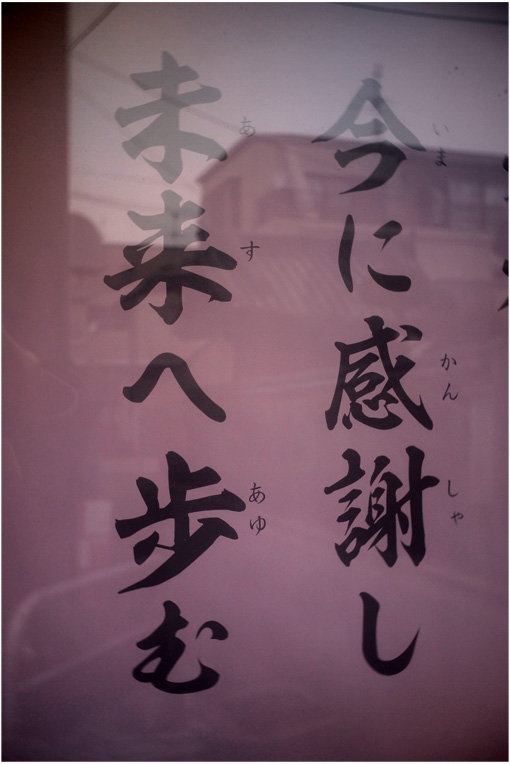 今に感謝し
いま かんしゃ
未来へ歩む
あす あゆ